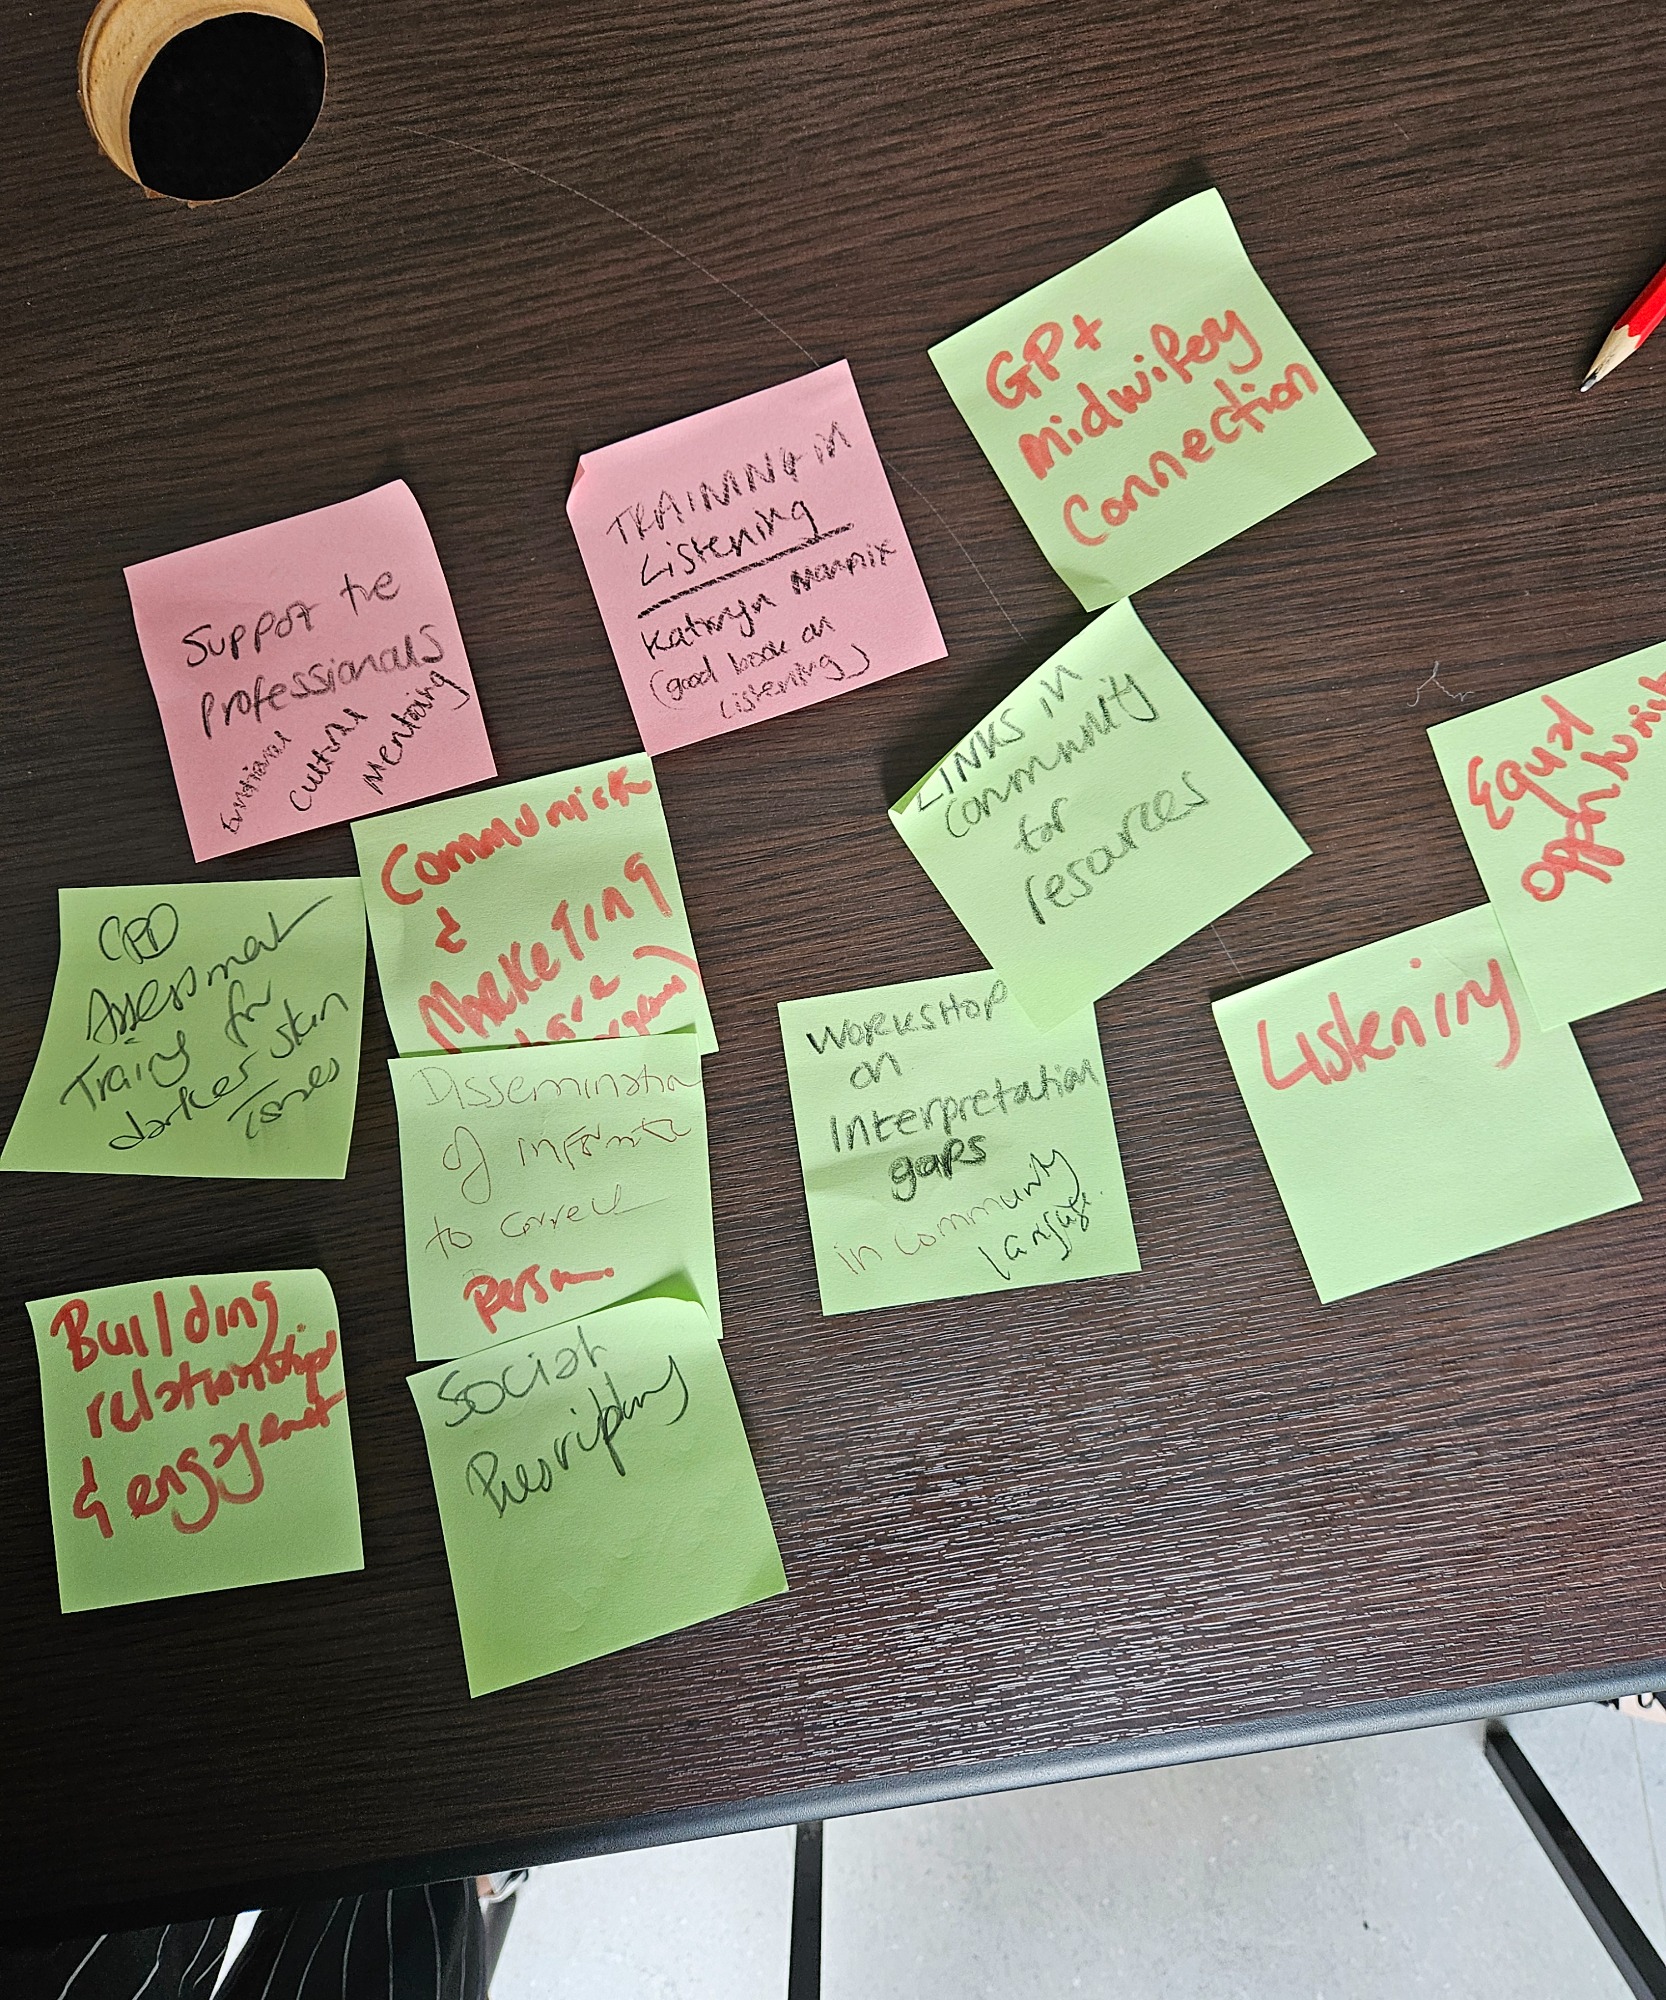 GP+
midwifery
Connection
TRAINING in
Listening
Kathryn Mannix
(good book on
listening)
Support the
professionals
Emotional
Cultural
Mentoring
LINKS in
community
for
resources
Equal
Listening
Communicat
&
Marketing
CPD
Assessment
Traing for
darker skin
Tones
Workshop
on
Interpretation
gaps
in community
language.
Dissemination
of informatio
to correct
person.
Building
relationships
& engagement
Social
Prescribing